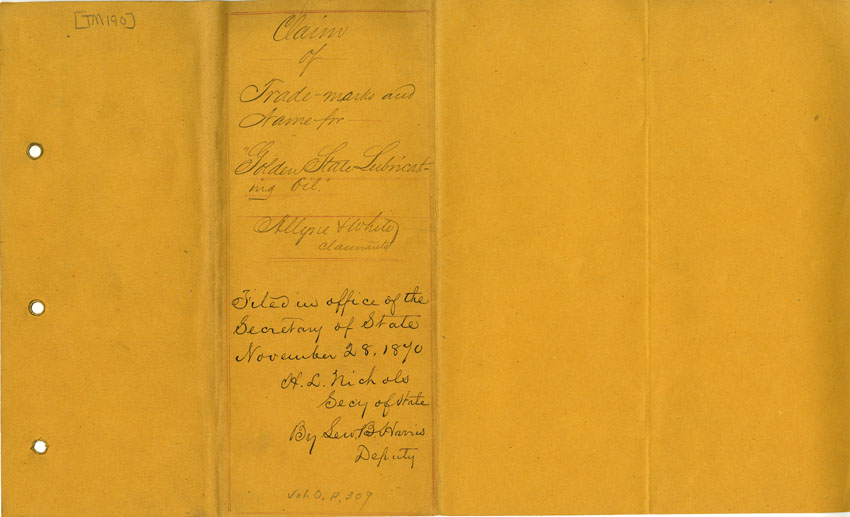 [TM190]
Claim
of
Trade-marks and
Name for
"Golden State Lubricat-
ing Oil."
Allyne & White
Claimants
Filed in office of the
Secretary of State
November 28, 1870
H. L. Nichols
Secy of State
By Lew B Harris
Deputy
Vol. O, P. 309